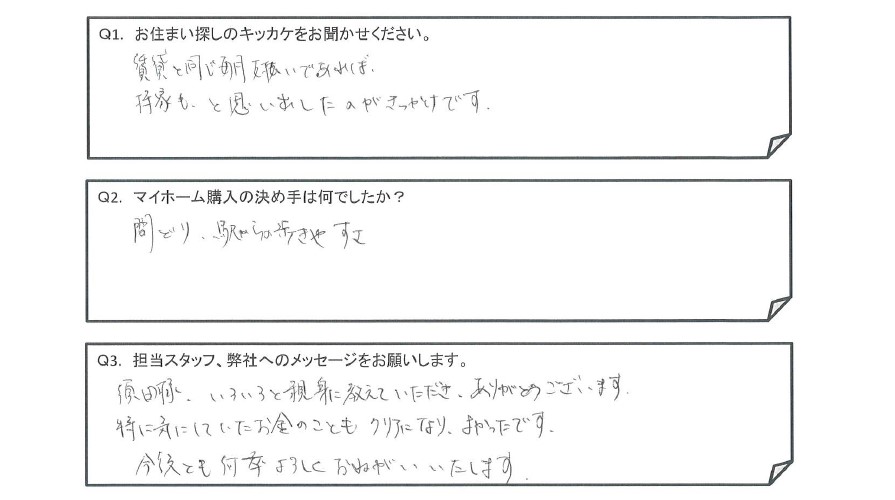 Q1. お住まい探しのキッカケをお聞かせください。
賃貸と同じ毎月支払いであれば、
持家も、と思い出したのがきっかけです。
Q2. マイホーム購入の決め手は何でしたか？
間どり、駅からの歩きやすさ
Q3. 担当スタッフ、弊社へのメッセージをお願いします。
須田様、いろいろと親身に教えていただき、ありがとうございます。
特に気にしていたお金のこともクリアになり、よかったです。
今後とも何卒よろしくおねがいいたします。